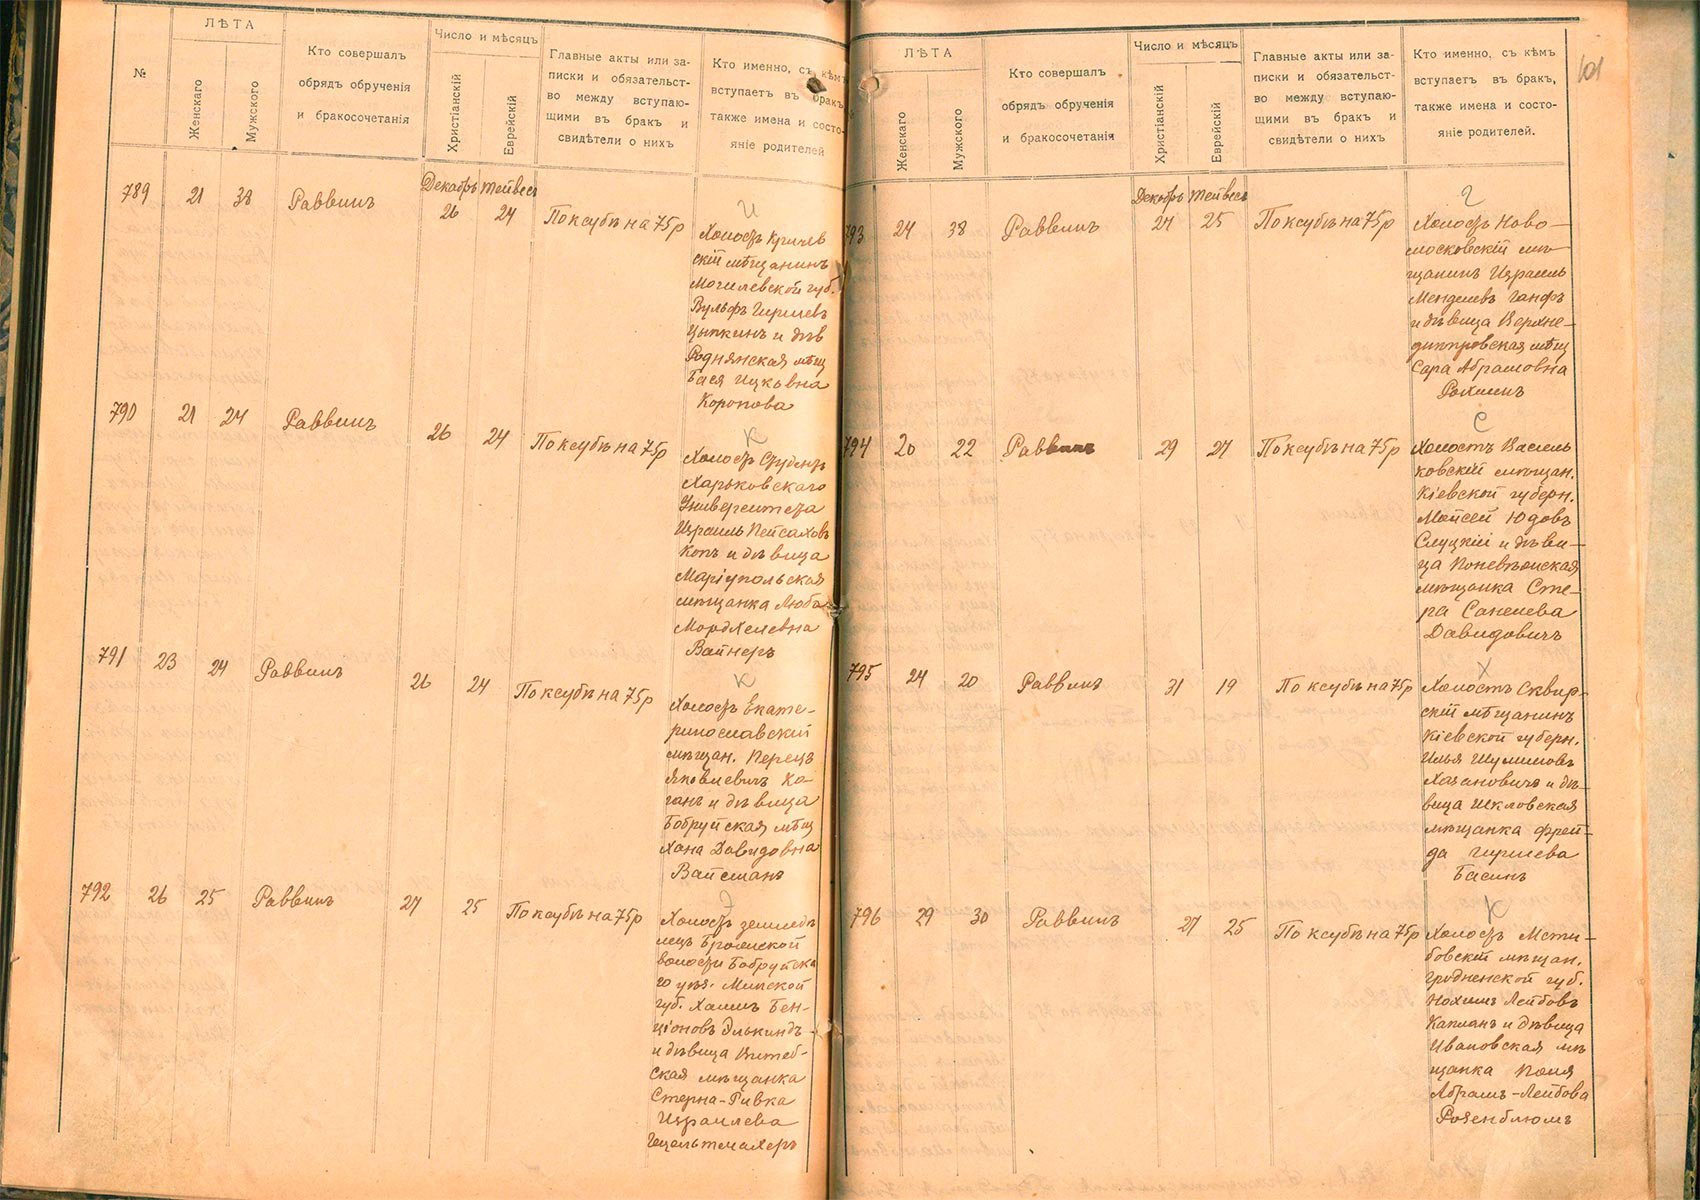 №
ЛѢТА
Женскаго
Мужского
Кто совершалъ
обрядъ обрученія
и бракосочетанія
Число и мѣсяцъ
Христіанскій
Еврейскій
Главные акты или за-
писки и обязательст-
во между вступаю-
щими въ бракъ и
свидѣтели о нихъ
Кто именно, съ кѣмъ
вступаетъ въ бракъ,
также имена и состо-
яніе родителей
789 21 38 Раввинъ
Декабрь Тейвесъ
26 24 По ксубѣ на 75р
Холостъ Кричев
скій мѣщанинъ
Могилевской губ.
Вульфъ Гиршевъ
Цыпкинъ и дѣв
Роднянская мѣщ
Бася Ицковна
Коропова
790 21 24 Раввинъ 26 24 По ксубѣ на 75р
К
Холостъ Студентъ
Харьковскаго
Университета
Израиль Пейсаховъ
Копъ и дѣвица
Маріупольская
мѣщанка Люба
Мордхелевна
Вайнеръ
791 23 24 Раввинъ 26 24 По ксубѣ на 75р
К
Холостъ Екате-
ринославскій
мѣщан. Перецъ
Яковлевичъ Ко-
ганъ и дѣвица
Бобруйская мѣщ
Хана Давидовна
Вайсманъ
792 26 25 Раввинъ 27 25 По ксубѣ на 75р
Э
Холостъ земледѣ
лецъ Брожской
волости Бобруйска
го уѣз. Минской
губ. Хаимъ Бен-
ціоновъ Элькиндъ-
и дѣвица Витеб-
ская мѣщанка
Стерна-Ривка
Израилева
Гецельтмахеръ
101
ЛѢТА
Женскаго
Мужского
Кто совершалъ
обрядъ обрученія
и бракосочетанія
Число и мѣсяцъ
Христіанскій
Еврейскій
Главные акты или за-
писки и обязательст-
во между вступаю-
щими въ бракъ и
свидѣтели о нихъ
Кто именно, съ кѣмъ
вступаетъ въ бракъ,
также имена и состо-
яніе родителей.
793 24 38 Раввинъ
Декабрь Тейвесъ
27 25 По ксубѣ на 75р
Г
Холостъ Ново-
московскій мѣ-
щанинъ Израиль
Менделевъ Ганфъ
и дѣвица Верхне-
днѣпровская мѣщ
Сара Абрамовна
Рохлинъ
794 20 22 Раввинъ 29 27 По ксубѣ на 75р
С
Холостъ Василь
ковскій мѣщан.
Кіевской губерн.
Мойсей Юдовъ
Слуцкій и дѣви-
ца Поневѣжская
мѣщанка Сте-
ра Санелева
Давидовичъ
795 24 20 Раввинъ 31 19 По ксубѣ на 75р
Х
Холостъ Сквир-
скій мѣщанинъ
Кіевской губерн.
Илья Шулимовъ
Хазановичъ и дѣ-
вица Шкловская
мѣщанка Фрей-
да Гиршева
Басинъ
796 29 30 Раввинъ 27 25 По ксубѣ на 75р
К
Холостъ Мсти-
бовскій мѣщан.
Гродненской губ.
Нохимъ Лейбовъ
Капланъ и дѣвица
Ивановская мѣ
щанка Поля
Абрамъ-Лейбова
Розенблюмъ